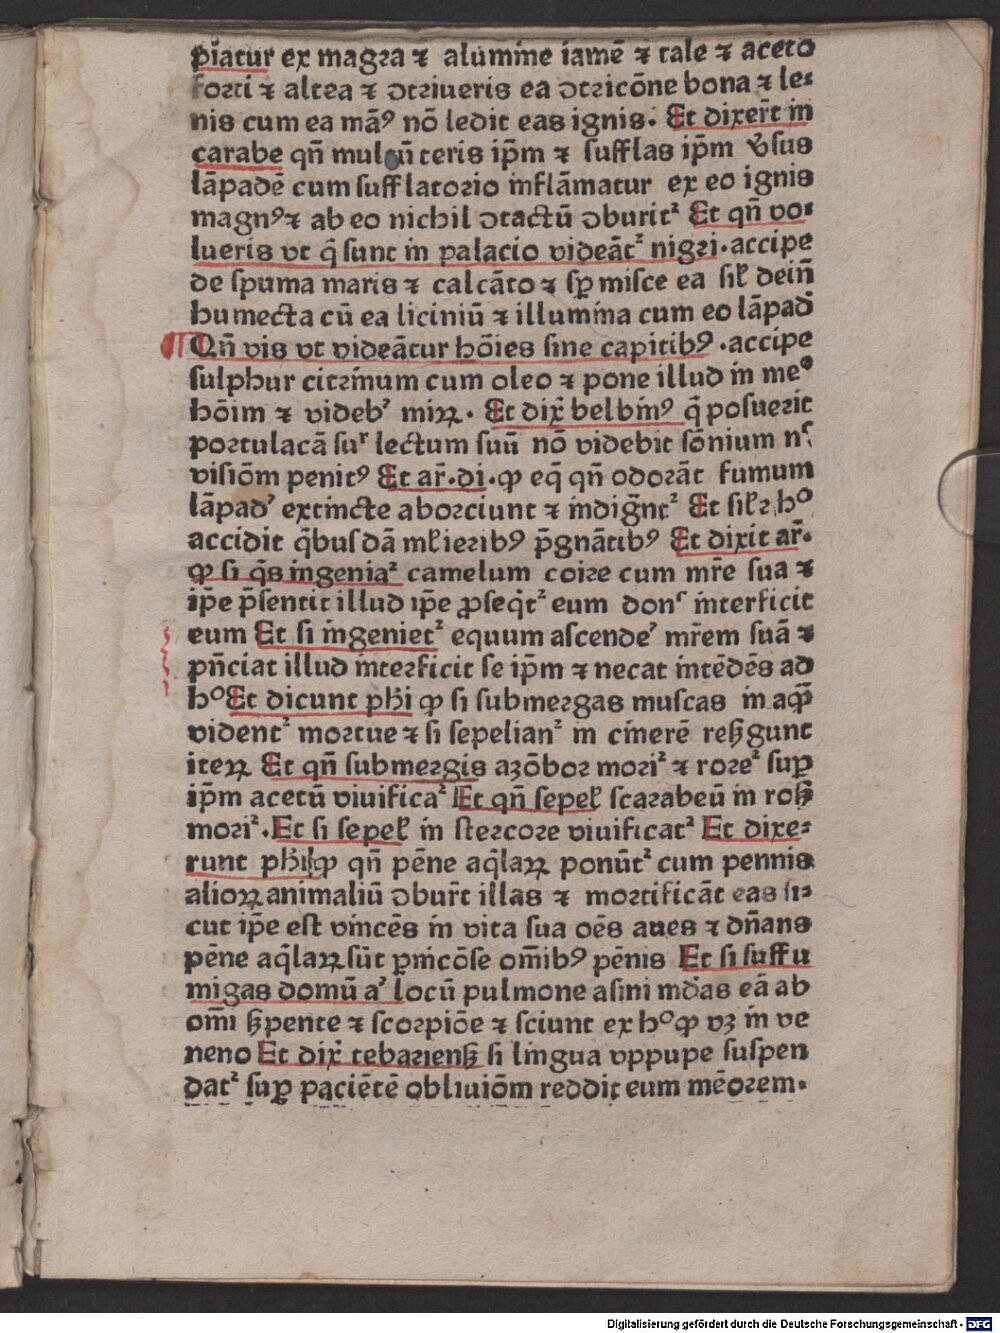 p̄iatur ex magꝛa ⁊ alumine iamē ⁊ tale ⁊ aceto
foꝛti ⁊ altea ⁊ ↄtꝛiueris ea ↄtꝛicōne bona ⁊ le-
nis cum ea mãꝰ nō ledit eas ignis. Et dixer̄t in
carabe qñ mul ū teris ip̄m ⁊ sufflas ip̄m v̓sus
lāpadē cum sufflatoꝛio inflāmatur ex eo ignis
magnꝰ⁊ ab eo nichil ↄtactū ↄburit᷑ Et qñ vo-
lueris vt q̄ sunt in palacio videāt᷑ nigꝛi. accipe
de spuma maris ⁊ calcāto ⁊ sꝑ misce ea sil̓ dein̄
humecta cū ea liciniū ⁊ illumina cum eo lāpad̄
Qñ vis vt videātur hōies sine capitibꝰ . accipe
sulphur citꝛinum cum oleo ⁊ pone illud in meº
hōim ⁊ videbʼ miꝝ. Et dix̄ belbinꝰ q̄ posuerit
poꝛtulacā suʳ lectum suū nō videbit sōnium nᶜ
visiōm penitꝰ Et ar̄. di. ꝙ eq̄ qñ odoꝛāt fumum
lāpadʼ extincte aboꝛciunt ⁊ indign̄t᷑ Et sil̓r hº
accidit q̄busdā ml̓ieribꝰ p̄gnātibꝰ Et dixit ar̄.
ꝙ si q̄s ingenia᷑ camelum coiꝛe cum mr̄e sua ⁊
ip̄e p̄sentit illud ip̄e ꝓseq̄t᷑ eum donᶜ interficit
eum Et si ingeniet᷑ equum ascendeʼ mr̄em suā ⁊
pn̄ciat illud interficit se ip̄m ⁊ necat intēdēs ad
hº Et dicunt ph̄i ꝙ si submeꝛgas muscas in aqᷓ
vident᷑ moꝛtue ⁊ si sepelian᷑ in cinerē resꝫgunt
iteꝝ Et qñ submeꝛgis aʒōboꝛ moꝛi᷑ ⁊ roꝛe᷑ suꝑ
ip̄m acetū viuifica᷑ Et qñ sepel̓ scarabeū in roß
moꝛi᷑. Et si sepel̓ in steꝛcoꝛe viuificat᷑ Et dixe-
runt ph̄i ꝙ qñ pēne aq̄laꝝ ponūt᷑ cum pennis
alioꝝ animaliū ↄbur̄t illas ⁊ moꝛtificāt eas si-
cut ip̄e est vincēs in vita sua oēs aues ⁊ dn̄ans
pēne aq̄laꝝ sūt ꝑincōse om̄ibꝰ pēnis Et si suffu
migas domū aʼ locū pulmone asini mūdas eā ab
om̄i ßpente ⁊ scoꝛpiōe ⁊ sciunt ex hº ꝙ vʒ in ve
neno Et dix̄ tebarienß si lingua vppupe suspen
dat᷑ suꝑ paciētē obliuiōm reddit eum mēoꝛem.
Digitalisierung gefördert durch die Deutsche Forschungsgemeinschaft - DFG